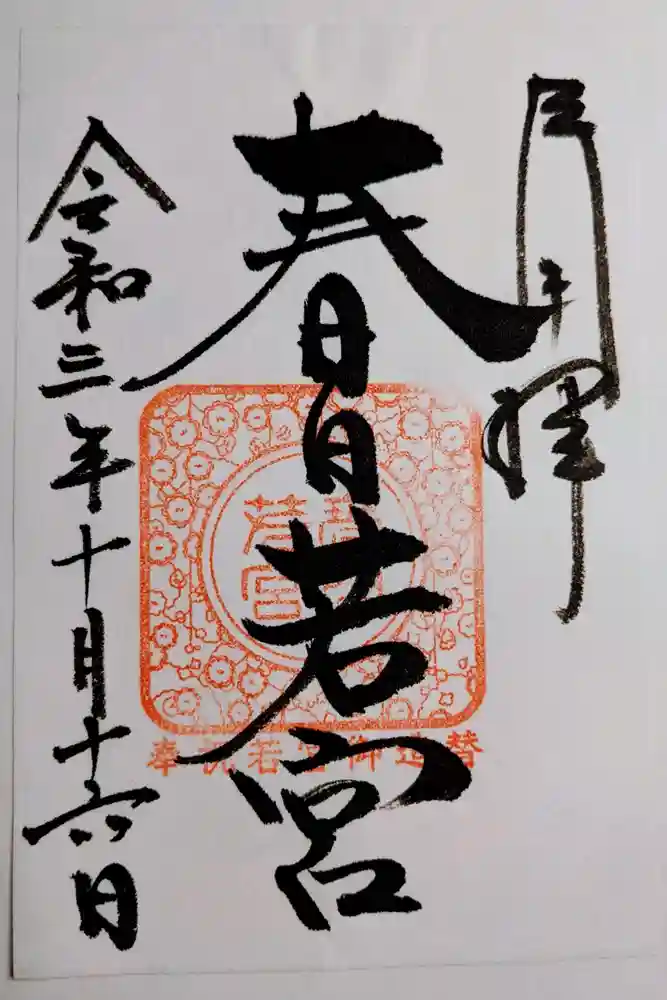 春日若宮
令和三年十月十六日
若宮
奉祝若宮御造替